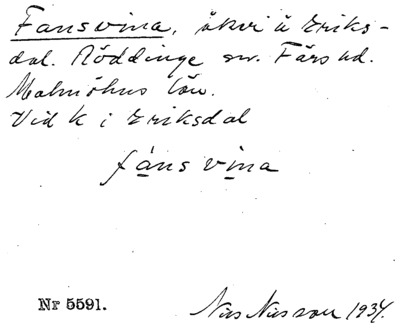 Fansvina, åkri å Eriks-
dal. Röddinge sn. Färs hd.
Malmöhus län.
Vid k i Eriksdal
fáns vina
Nr 5591.
Nils Nilsson 1934.